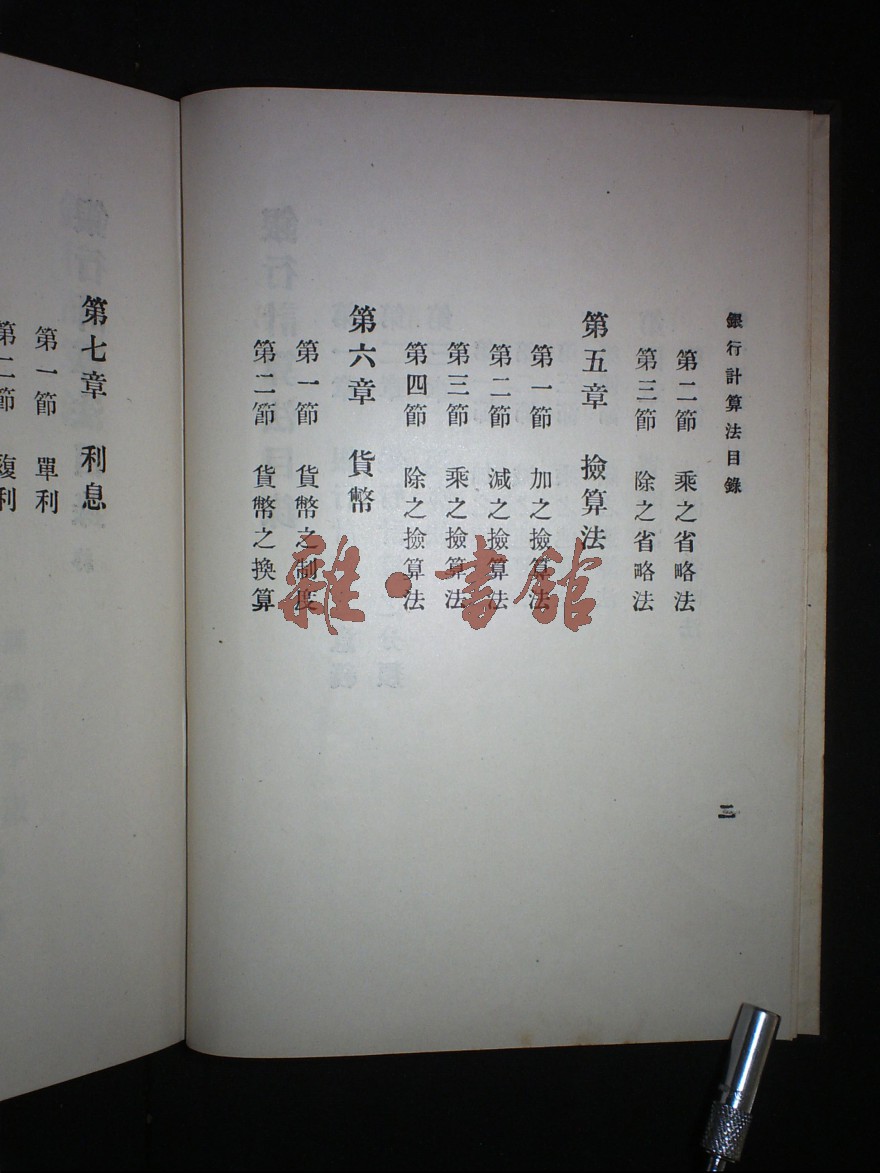 銀行計算法目錄
第二節 乘之省略法
第三節 除之省略法
第五章 撿算法
第一節 加之撿算法
第二節 減之撿算法
第三節 乘之撿算法
第四節 除之撿算法
第六章 貨幣
第一節 貨幣之制度
第二節 貨幣之換算
二
第七章 利息
第一節 單利
第二節 複利
雜·書館